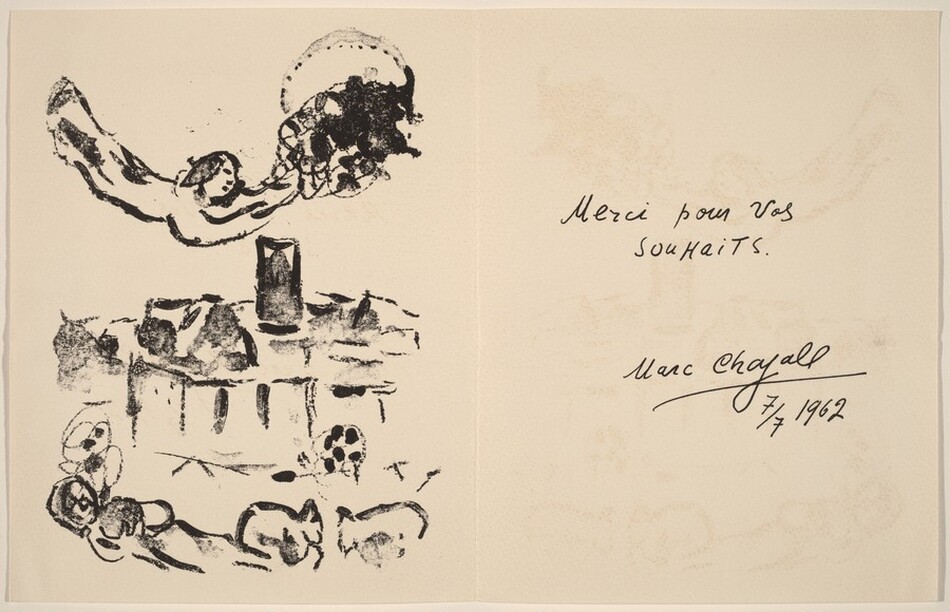 Merci pour Vos
souHaiTs.
Marc Chagall
7/7 1962